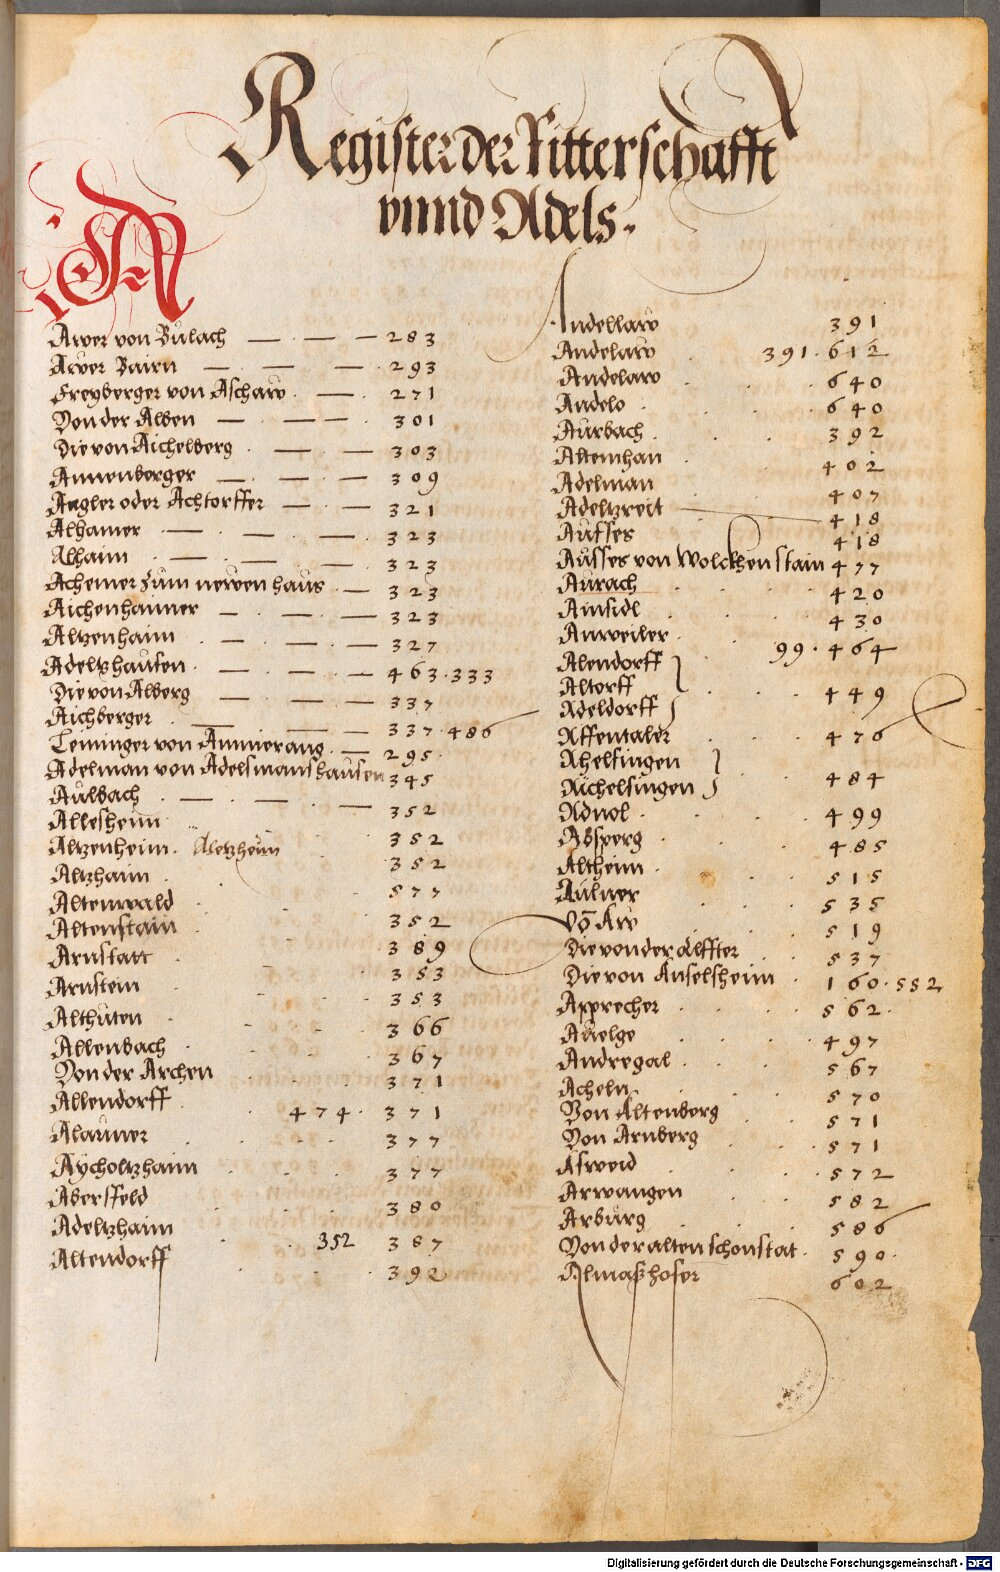 Register der Ritterschafft
vnnd Adels.
A
Awer von Bůlach 283
Awer Bairn 293
Freyberger von Aschaw 271
Von der Alben 301
Die von Aichelberg 303
Annenberger 309
Angler oder Achtorffer 321
Alhamer 323
Alhaim 323
Achemer zům newen haůs 323
Aichenhanner 323
Altzenhaim 327
Adeltzhaůsen 463.333
Die von Alberg 337
Aichberger 337.486
Leininger von Ammerang 295
Adelman von Adelsmanshaůsen 345
Aůlbach 352
Allesheim 352
Altzenheim. Aletzheim 352
Altzhaim 577
Altenwald 352
Altenstain 389
Arnstatt 353
Arnstein 353
Althůten 366
Allenbach 367
Von der Archen 371
Allendorff 474. 371
Alaůner 377
Aycholtzhaim 377
Abersfeld 380
Adeltzhaim 352 387
Altendorff 392
Andellaw 391
Andelaw 391.612
Andelaw 640
Andelo 640
Aůrbach 392
Altemhan 402
Adelman 407
Adeltzreit 418
Aůfses 418
Aůfses von Wolckhenstain 477
Aůrach 420
Ainsidl 430
Anweiler 99.464
Alendorff
Altorff 449
Adeldorff
Affentaler 476
Ahelfingen
Aichelfingen 484
Adnol 499
Absperg 485
Altheim 515
Aůlner 535
Võ Aw 519
Die von der Alffter 537
Die von Anselsheim 160.552
Apprecher 562
Aůelge 497
Andregal 567
Acheln 570
Von Altenberg 571
Von Arnberg 571
Asweid 572
Arwangen 582
Arbůrg 586
Von der alten schonstat 590
Almaßhofer 602
Digitalisierung gefördert durch die Deutsche Forschungsgemeinschaft - DFG